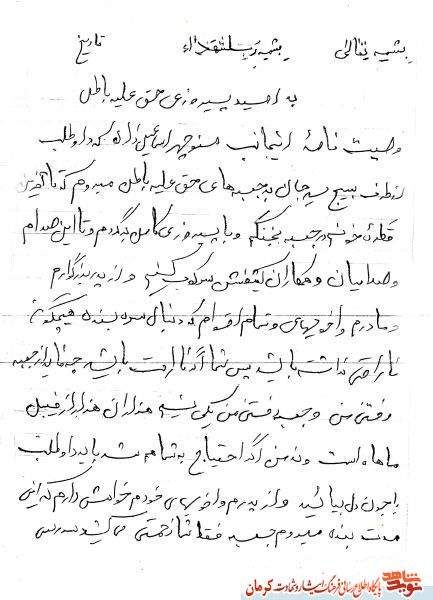 بسمه تعالی بسمه رب الشهداء تاریخ
به امید پیروزی حق علیه باطل
وصیت نامه اینجانب منوچهر اسماعیل زاده که داوطلب
از طرف بسیج سیرجان به جبهه های حق علیه باطل میروم که تا آخرین
قطره خونم در جبهه بجنگم و با پیروزی کامل برگردم و تا این صدام
وصدامیان و همکاران کثیفش سرکوب کنیم و از پدر بزرگوارم
و مادرم و اخویهای و تمام اقوام که دنبال سر بنده هیچگونه
ناراحتی نداشته باشید پس شما اگر ناراحت باشید چه فایده از جبهه
رفتن من و جبهه رفتن من یکی نیست هزاران هزار از قبیل
ماها است و بعد من اگر احتیاج به شما شد باید داوطلب
با جون دل بیائید و از پدرم و اخوی های خودم خواهش دارم که این
مدت بنده میروم جبهه فقط شما زحمتی می کشید
شاهد
نوید
پایگاه اطلاع رسانی فرهنگ ایثار و شهادت کرمان